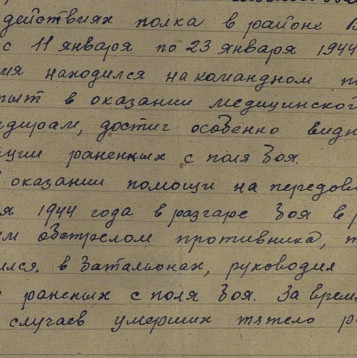 действиях полка в районе
с 11 января по 23 января 1944
мя находился на командном п
пыт в оказании медицинског
ндирам, достиг особенно видн
ации раненных с поля боя.
оказании помощи на передов
я 1944 года в разгаре боя в р
ем обстрелом противника, т
ился в батальонах, руководил
раненых с поля боя. За врем
случаев умерших тяжело р